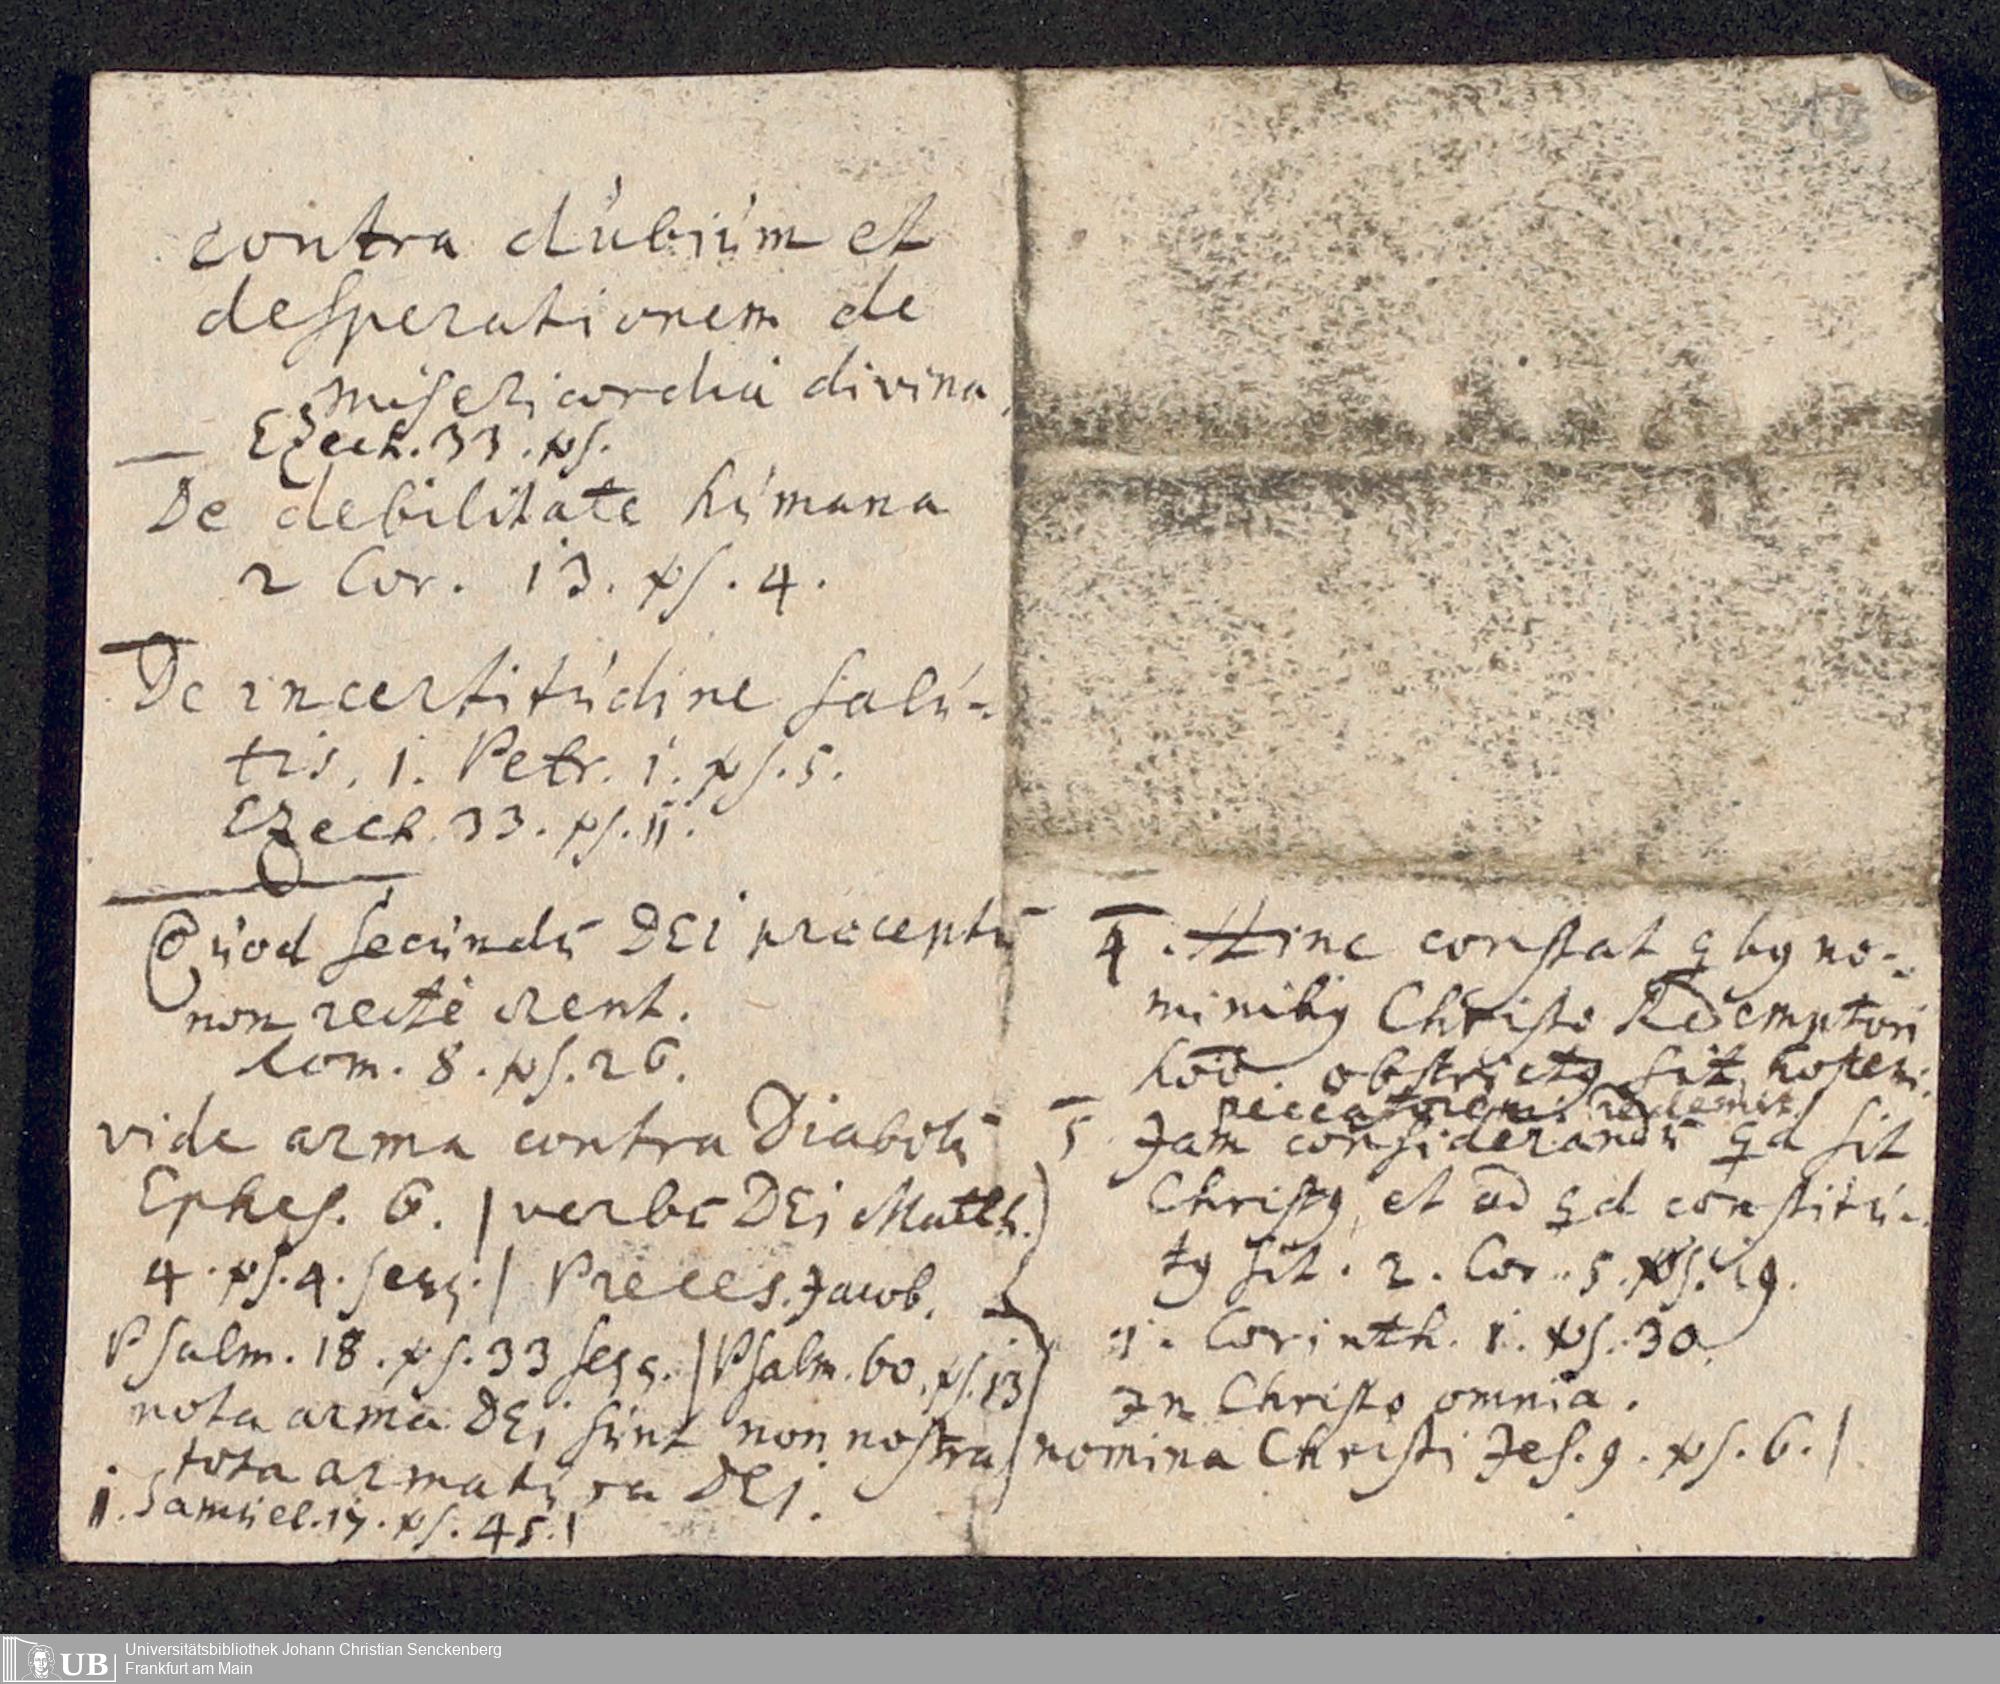 contra dúbiúm et
desperationem de
misericordia divina,
Ezech. 33. vs.
De debilitate húmana
2 Cor. 13. vs. 4.
De incertitúdine salú-
tis, 1. Petr. 1. vs. 5.
Ezech. 33. vs. 11.
Qúod secúndū DEi præceptū
non recté orent.
Rom. 8. vs. 26.
vide arma contra Diabolū
Ephes. 6. / verbū DEi Matth.
4. vs. 4. seqq. / Preces. Jacob.
Psalm. 18. vs. 33 seqq. / Psalm. 60. vs. 13
nota arma DEi sunt non nostra
tota armatúra DEi.
1. Samúel. 17. vs. 45. /
4. Hinc constat qbꝰ no-
minibꝰ Christo Redemptori
hoō. obstrictꝰ sit,
peccatorem redemit.
5 Jam considerandū qd sit
Christꝰ, et ad qd constitú-
tꝰ sit. 2. Cor. 5. vs. 19.
1. Corinth. 1. vs. 30.
In Christo omnia.
nomina Christi Jes. 9. vs. 6. /
UB
Universitätsbibliothek Johann Christian Senckenberg
Frankfurt am Main